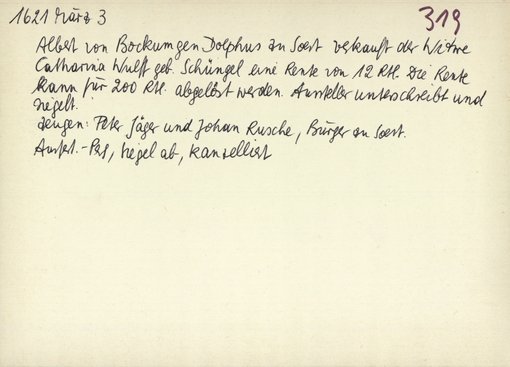 1621 März 3
319
Albert von Bockum gen Dolphus zu Soest verkauft der Witwe
Catharina Wulff geb. Schüngel eine Rente von 12 Rtl. Die Rente
kann für 200 Rtl. abgelöst werden. Aussteller unterschreibt und
siegelt.
Zeugen: Peter Jäger und Johan Rusche, Bürger zu Soest.
Ausfert.-Perg, Siegel ab, kanzelliert